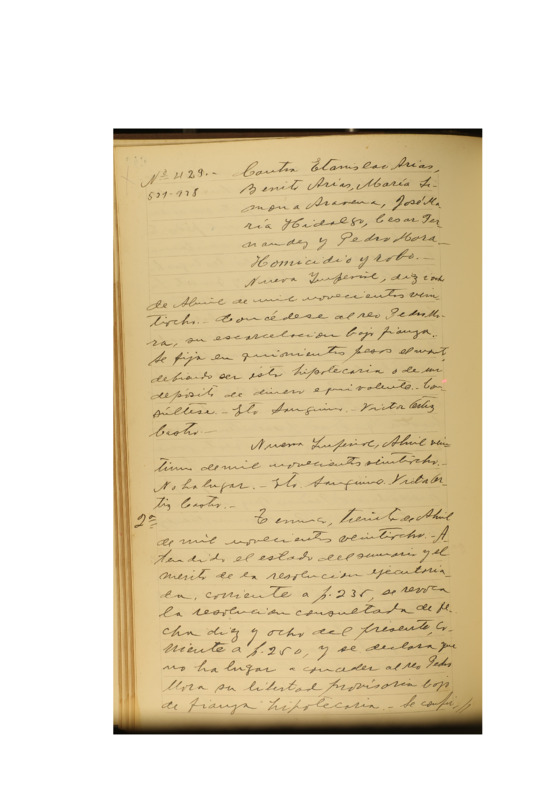 Nº 429.- Contra Etanislao Arias,
Benito Arias, María Si-
mona Aravena, José Ma
ría Hidalgo, Cesar Fer
nandez y Pedro Mora.-
Homicidio y robo.-
Nueva Imperial, diez i ocho
de Abril de mil novecientos vein
tiocho.- Concédese al reo Pedro Mo-
ra, su escarcelacion bajo fianza.
Se fija en quinientos pesos el monto,
debiendo ser esta hipotecaria o de un
depósito de dinero equivalente. Con
súltese.- Sanguino.- Victor Ortiz
Castro.-
Nueva Imperial, Abril vein
tiuno de mil novecientos veintiocho.-
No ha lugar.- Sanguino. Victor Or
tiz Castro.-
2ª Temuco, treinta de Abril
de mil novecientos veintiocho.- A-
tendido el estado del sumario y el
mérito de la resolucion ejecutoria-
da, corriente a f. 235, se revoca
la resolucion consultada de fe-
cha diez y ocho del presente, co-
rriente a f. 250, y se declara que
no ha lugar a conceder al reo Pedro
Mora su libertad provisoria bajo
de fianza hipotecaria.-